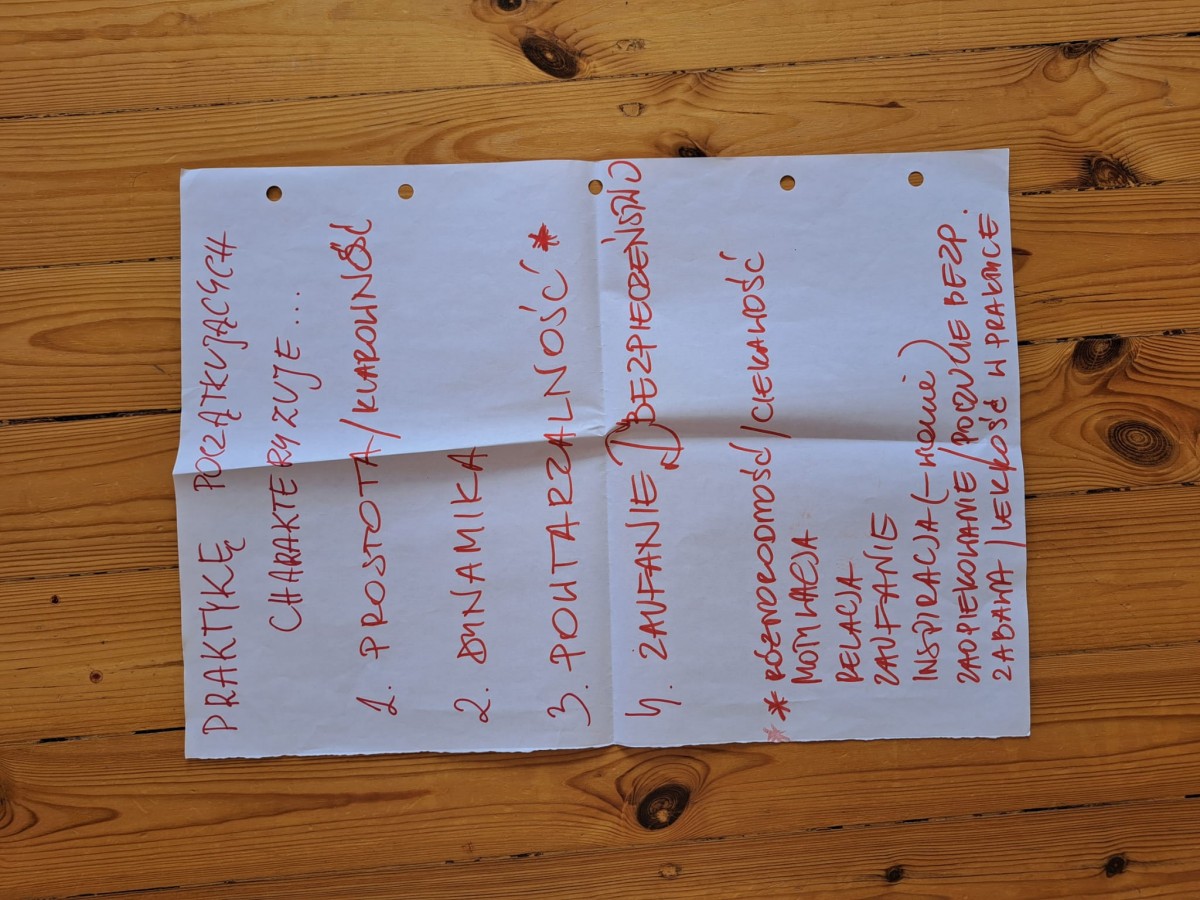 PRAKTYKĘ POCZĄTKUJĄCYCH
CHARAKTERYZUJE...
1. PROSTOTA/KLAROWNOŚĆ
2. DYNAMIKA
3. POWTARZALNOŚĆ *
4. ZAUFANIE BEZPIECZEŃSTWO
* * RÓŻNORODNOŚĆ/CIEKAWOŚĆ
MOTYWACJA
RELACJA
ZAUFANIE
INSPIRACJA (-)
ZAOPIEKOWANIE/POCZUCIE BEZP.
ZABAWA/LEKKOŚĆ W PRAKTYCE